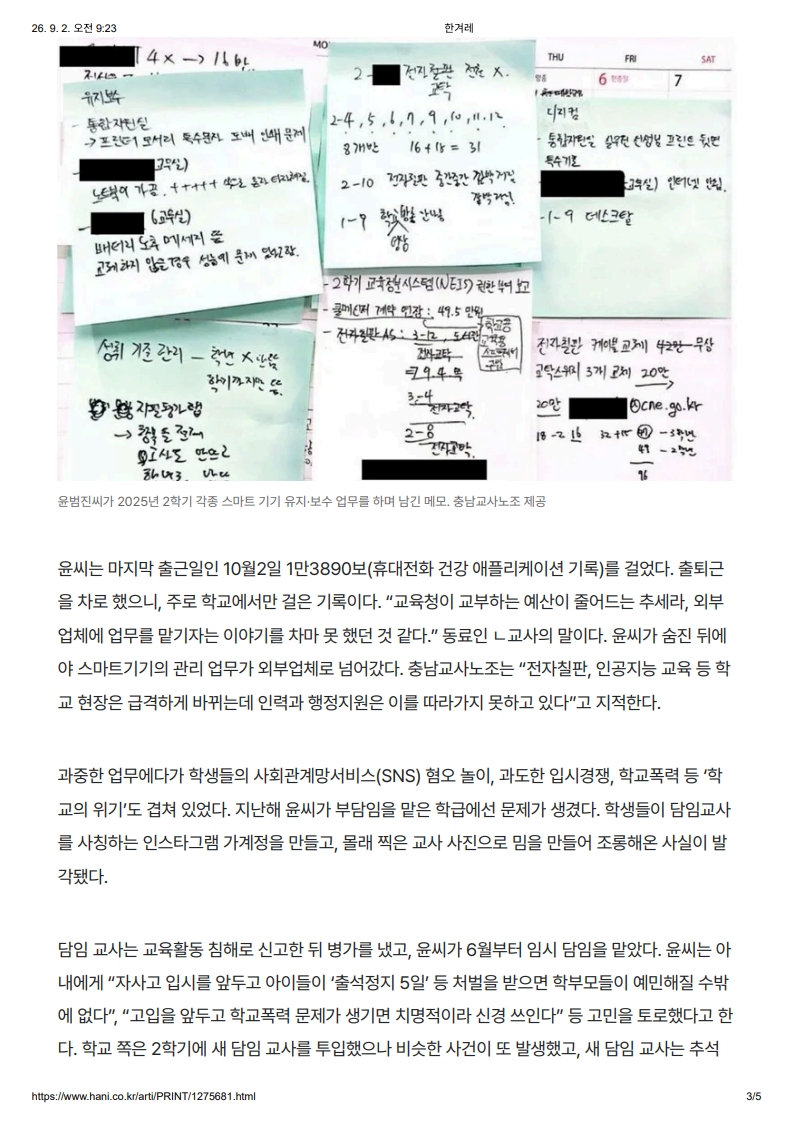 26. 9. 2. 오전 9:23
한겨레
4x -> 16반
유지보수
- 통합지원실
-> 프린터 모서리 특수문자 도배 인쇄 문제
교무실)
노트북에 가끔 . +++++
(6교무실)
배터리 노후 메세지 뜸
교체하지 않을 경우 성능에 문제
MO
2- 전자칠판 전원 X.
교탁
2-4, 5, 6, 7, 9, 10, 11, 12
8개반 16+15 = 31
2-10 전자칠판 중간중간 깜박거림
깜박거림!
1-9 학교방송 안나옴
영상
THU FRI SAT
6 현충일 7
디지컴
- 통합지원실 선생님 프린트 뒷면
특수기호
교무실) 인터넷 안됨.
- 1-9 데스크탑
- 2학기 교육정보시스템(NEIS) 권한 부여 보고
- 쿨메신저 계약 연장 : 49.5 만원
- 전자칠판 AS : 3-12, 도서관
전자교탁
=> 9.4. 목
3-4
전자교탁.
2-8
전자교탁.
학교용
교육용
소프트웨어
구입
성취 기준 관리 - 학년 X 안뜸
학기까지만 뜸.
지필평가 탭
-> 항목들 전체
전자칠판 케이블 교체 42만 무상
교탁스위치 3개 교체 20만
20만 @cne.go.kr
18-2 16 32+15 47 - 3학년
49 - 2학년
96
윤범진씨가 2025년 2학기 각종 스마트 기기 유지·보수 업무를 하며 남긴 메모. 충남교사노조 제공
윤씨는 마지막 출근일인 10월2일 1만3890보(휴대전화 건강 애플리케이션 기록)를 걸었다. 출퇴근
을 차로 했으니, 주로 학교에서만 걸은 기록이다. “교육청이 교부하는 예산이 줄어드는 추세라, 외부
업체에 업무를 맡기자는 이야기를 차마 못 했던 것 같다.” 동료인 ㄴ교사의 말이다. 윤씨가 숨진 뒤에
야 스마트기기의 관리 업무가 외부업체로 넘어갔다. 충남교사노조는 “전자칠판, 인공지능 교육 등 학
교 현장은 급격하게 바뀌는데 인력과 행정지원은 이를 따라가지 못하고 있다”고 지적한다.
과중한 업무에다가 학생들의 사회관계망서비스(SNS) 혐오 놀이, 과도한 입시경쟁, 학교폭력 등 ‘학
교의 위기’도 겹쳐 있었다. 지난해 윤씨가 부담임을 맡은 학급에선 문제가 생겼다. 학생들이 담임교사
를 사칭하는 인스타그램 가계정을 만들고, 몰래 찍은 교사 사진으로 밈을 만들어 조롱해온 사실이 발
각됐다.
담임 교사는 교육활동 침해로 신고한 뒤 병가를 냈고, 윤씨가 6월부터 임시 담임을 맡았다. 윤씨는 아
내에게 “자사고 입시를 앞두고 아이들이 ‘출석정지 5일’ 등 처벌을 받으면 학부모들이 예민해질 수밖
에 없다”, “고입을 앞두고 학교폭력 문제가 생기면 치명적이라 신경 쓰인다” 등 고민을 토로했다고 한
다. 학교 쪽은 2학기에 새 담임 교사를 투입했으나 비슷한 사건이 또 발생했고, 새 담임 교사는 추석
https://www.hani.co.kr/arti/PRINT/1275681.html
3/5